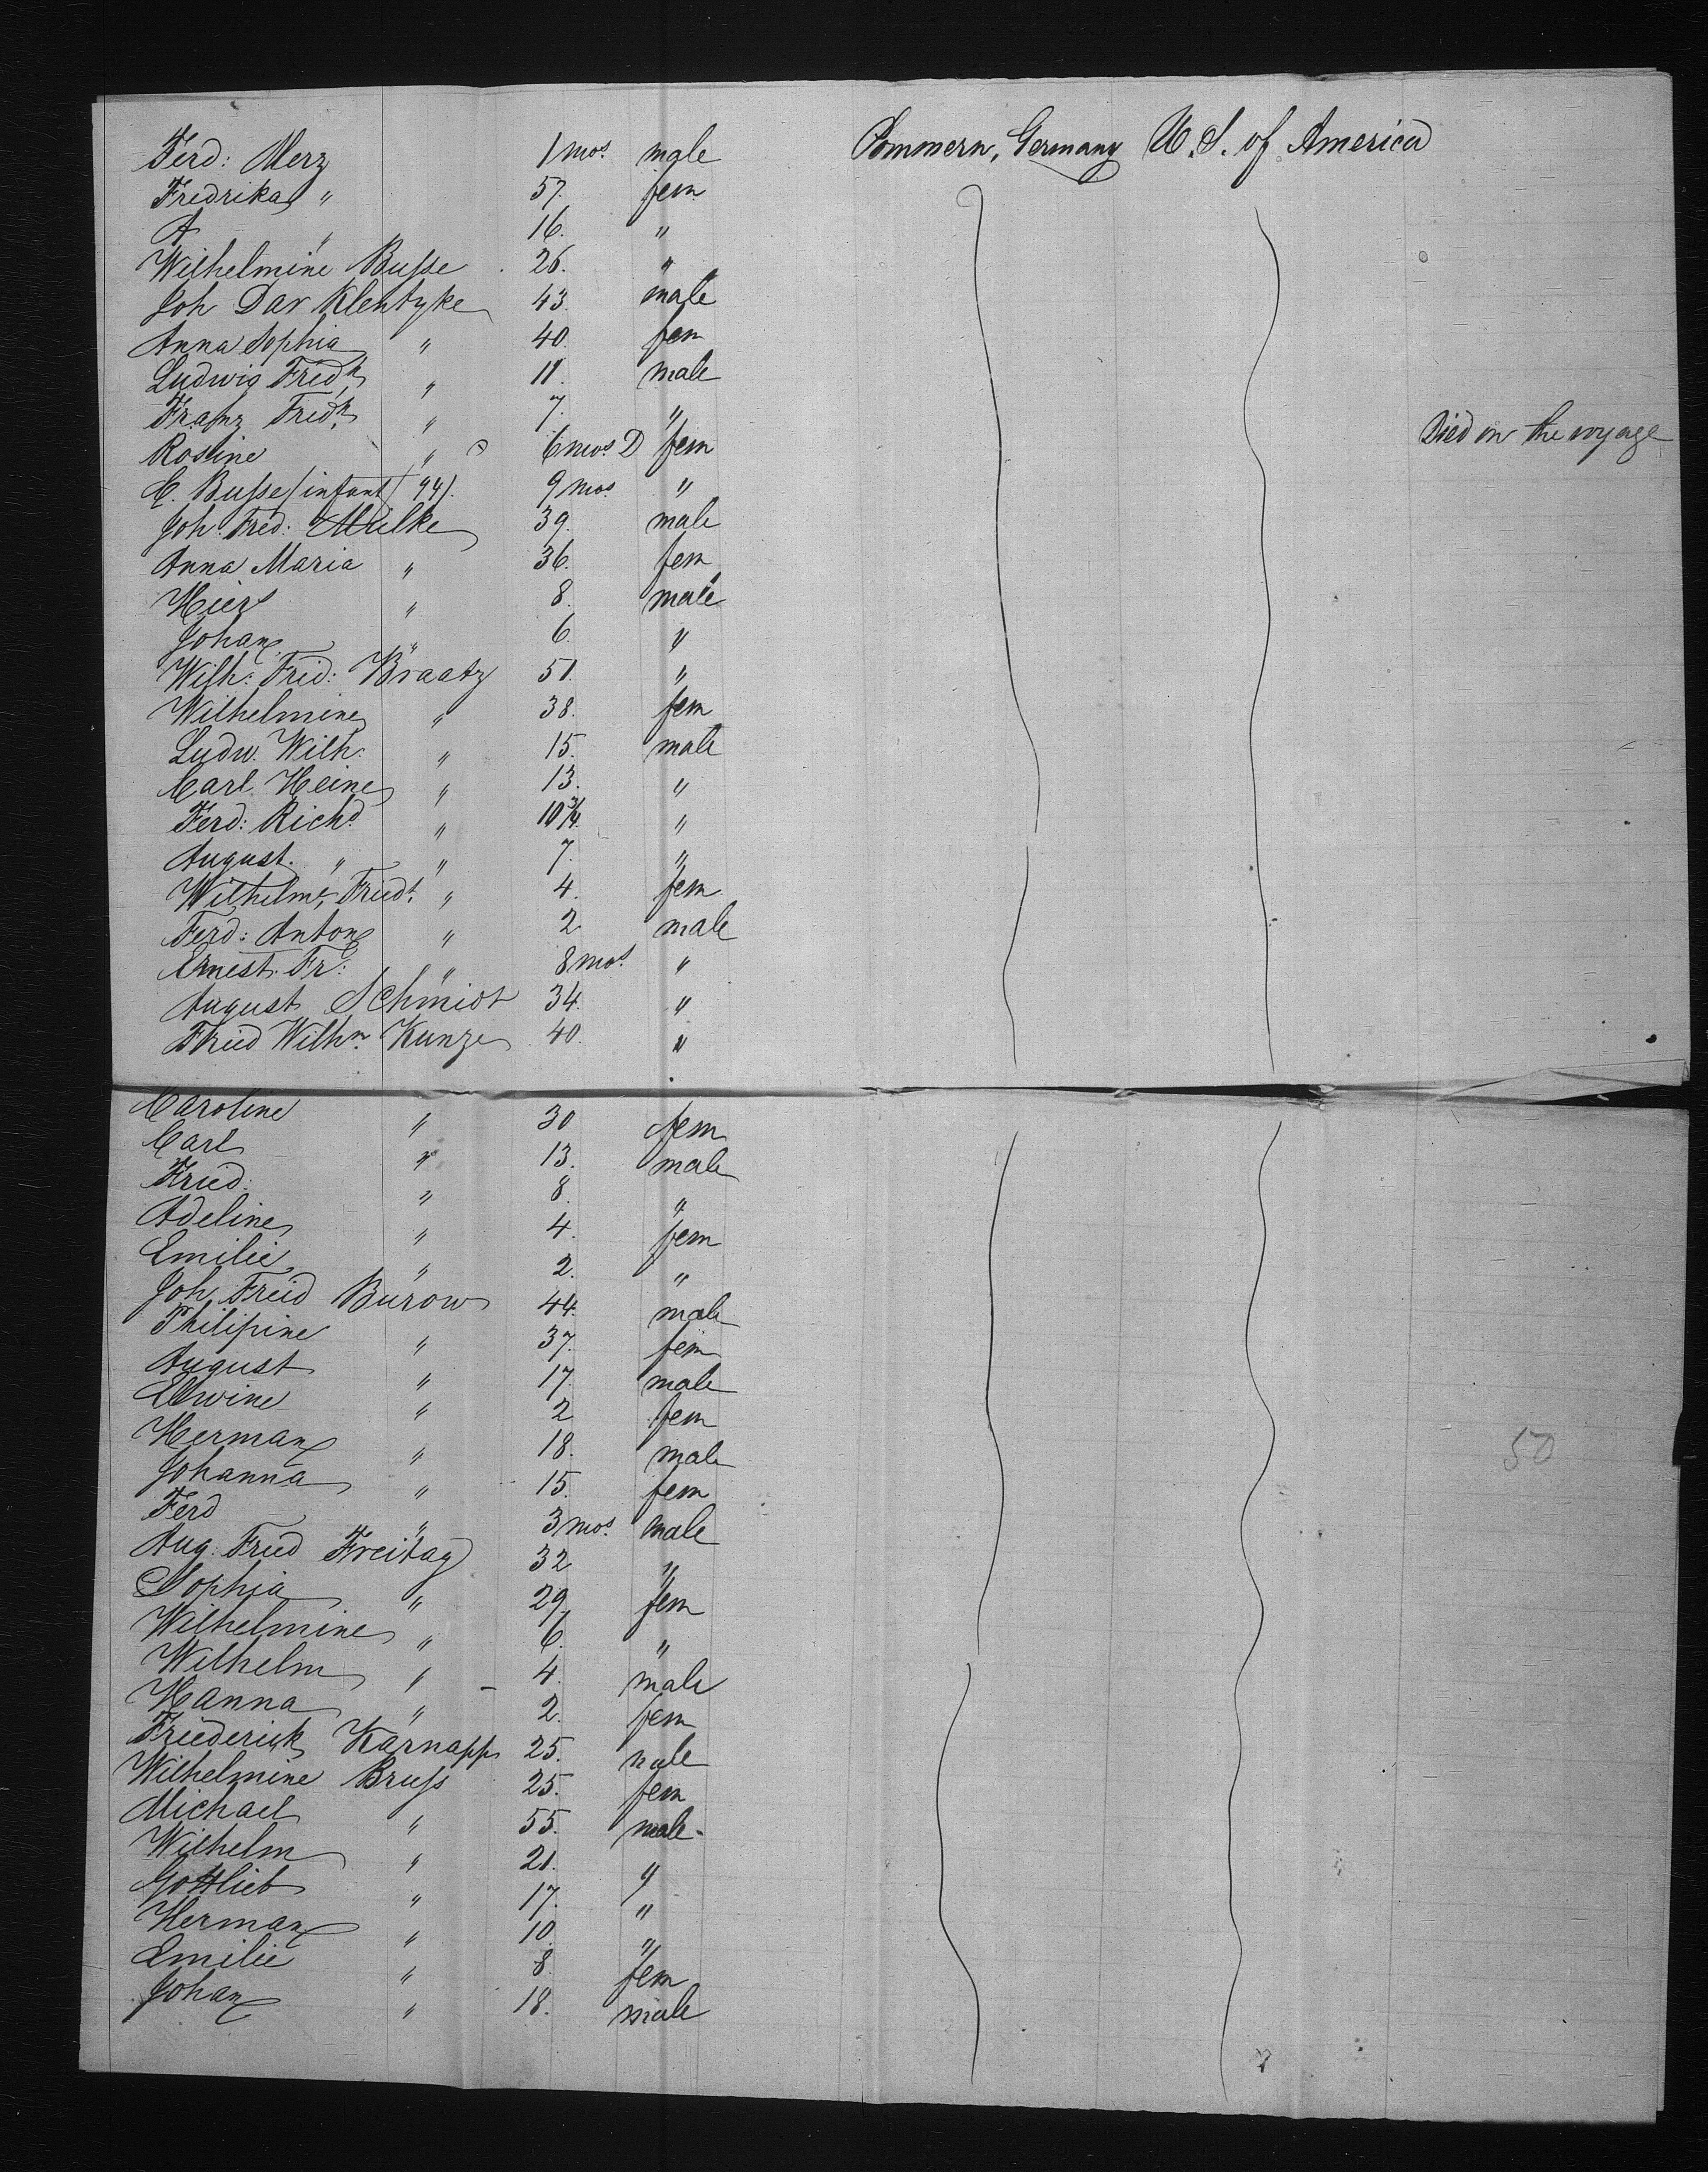 Ferd: Merz 1 mos. male Pommern, Germany U. S. of America
Fredrika " 57. fem
A " 16. "
Wilhelmine Busse 26. "
Joh Dav Klentzke 43. male
Anna Sophia " 40. fem
Ludwig Fredk " 11. male
Franz Fredk " 7. "
Rosine " 6 mos. D fem Died on the voyage
C. Busse (infant) 44). 9 mos. "
Joh. Fred: Mülke 39. male
Anna Maria " 36. fem
" 8. male
Johan " 6. "
Wilh: Frid: Braatz 51. "
Wilhelmine " 38. fem
Ludw. Wilh. " 15. male
Carl. Heine " 13. "
Ferd: Richd " 10 3/4. "
August. " " 7. "
Wilhelme, Friedr. " 4. fem
Ferd: Anton " 2. male
Ernest. Fr: " 8 mos. "
August Schmidt 34. "
Fried Wilhm Kunze 40. "
Caroline " 30 fem
Carl " 13. male
Fried: " 8. "
Adeline " 4. fem
Emilie " 2. "
Joh Freid Burow 44. male
Philipine " 37. fem
August " 17. male
Elwine " 2 fem
Herman " 18. male
Johanna " 15. fem
Ferd " 3 mos. male
Aug. Fried Freitag 32 "
Sophia " 29. fem
Wilhelmine " 6. "
Wilhelm " - 4. male
Hanna " 2. fem
Friederick Karnapp 25. male
Wilhelmine Bruss 25. fem
Michael " 55. male
Wilhelm " 21. "
Gottlieb " 17. "
Herman " 10. "
Emilie " 8. fem
Johan " 18. male
50